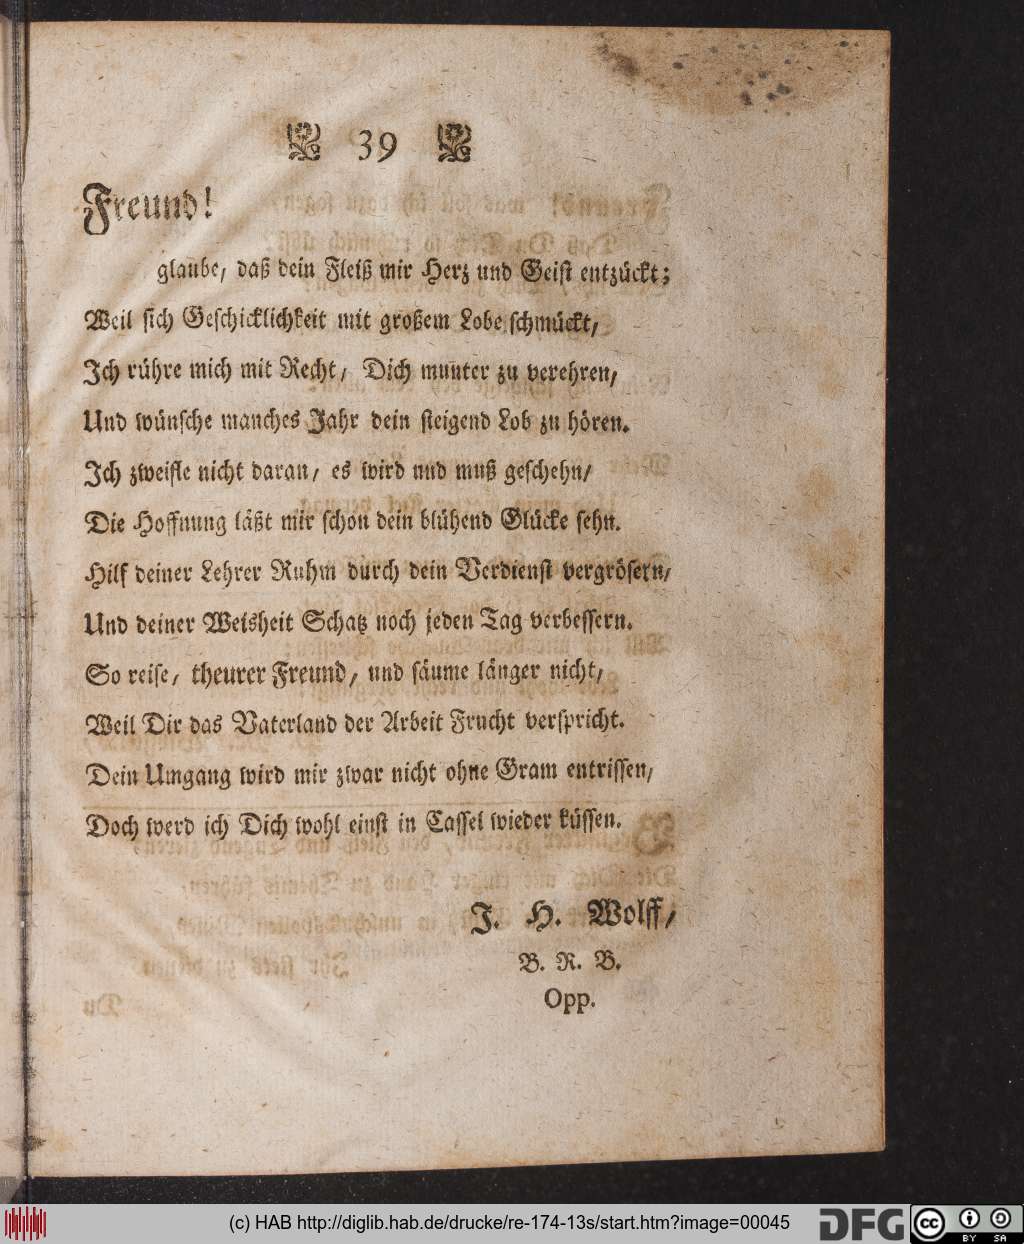 39
Freund!
glaube, daß dein Fleiß mir Herz und Geist entzückt;
Weil sich Geschicklichkeit mit großem Lobe schmückt,
Ich rühre mich mit Recht, Dich munter zu verehren,
Und wünsche manches Jahr dein steigend Lob zu hören.
Ich zweifle nicht daran, es wird und muß geschehn,
Die Hoffnung läßt mir schon dein blühend Glücke sehn.
Hilf deiner Lehrer Ruhm durch dein Verdienst vergrösern,
Und deiner Weisheit Schatz noch jeden Tag verbessern.
So reise, theurer Freund, und säume länger nicht,
Weil Dir das Vaterland der Arbeit Frucht verspricht.
Dein Umgang wird mir zwar nicht ohne Gram entrissen,
Doch werd ich Dich wohl einst in Cassel wieder küssen.
J. H. Wolff,
B. R. B.
Opp.
(c) HAB http://diglib.hab.de/drucke/re-174-13s/start.htm?image=00045
DFG
cc BY SA